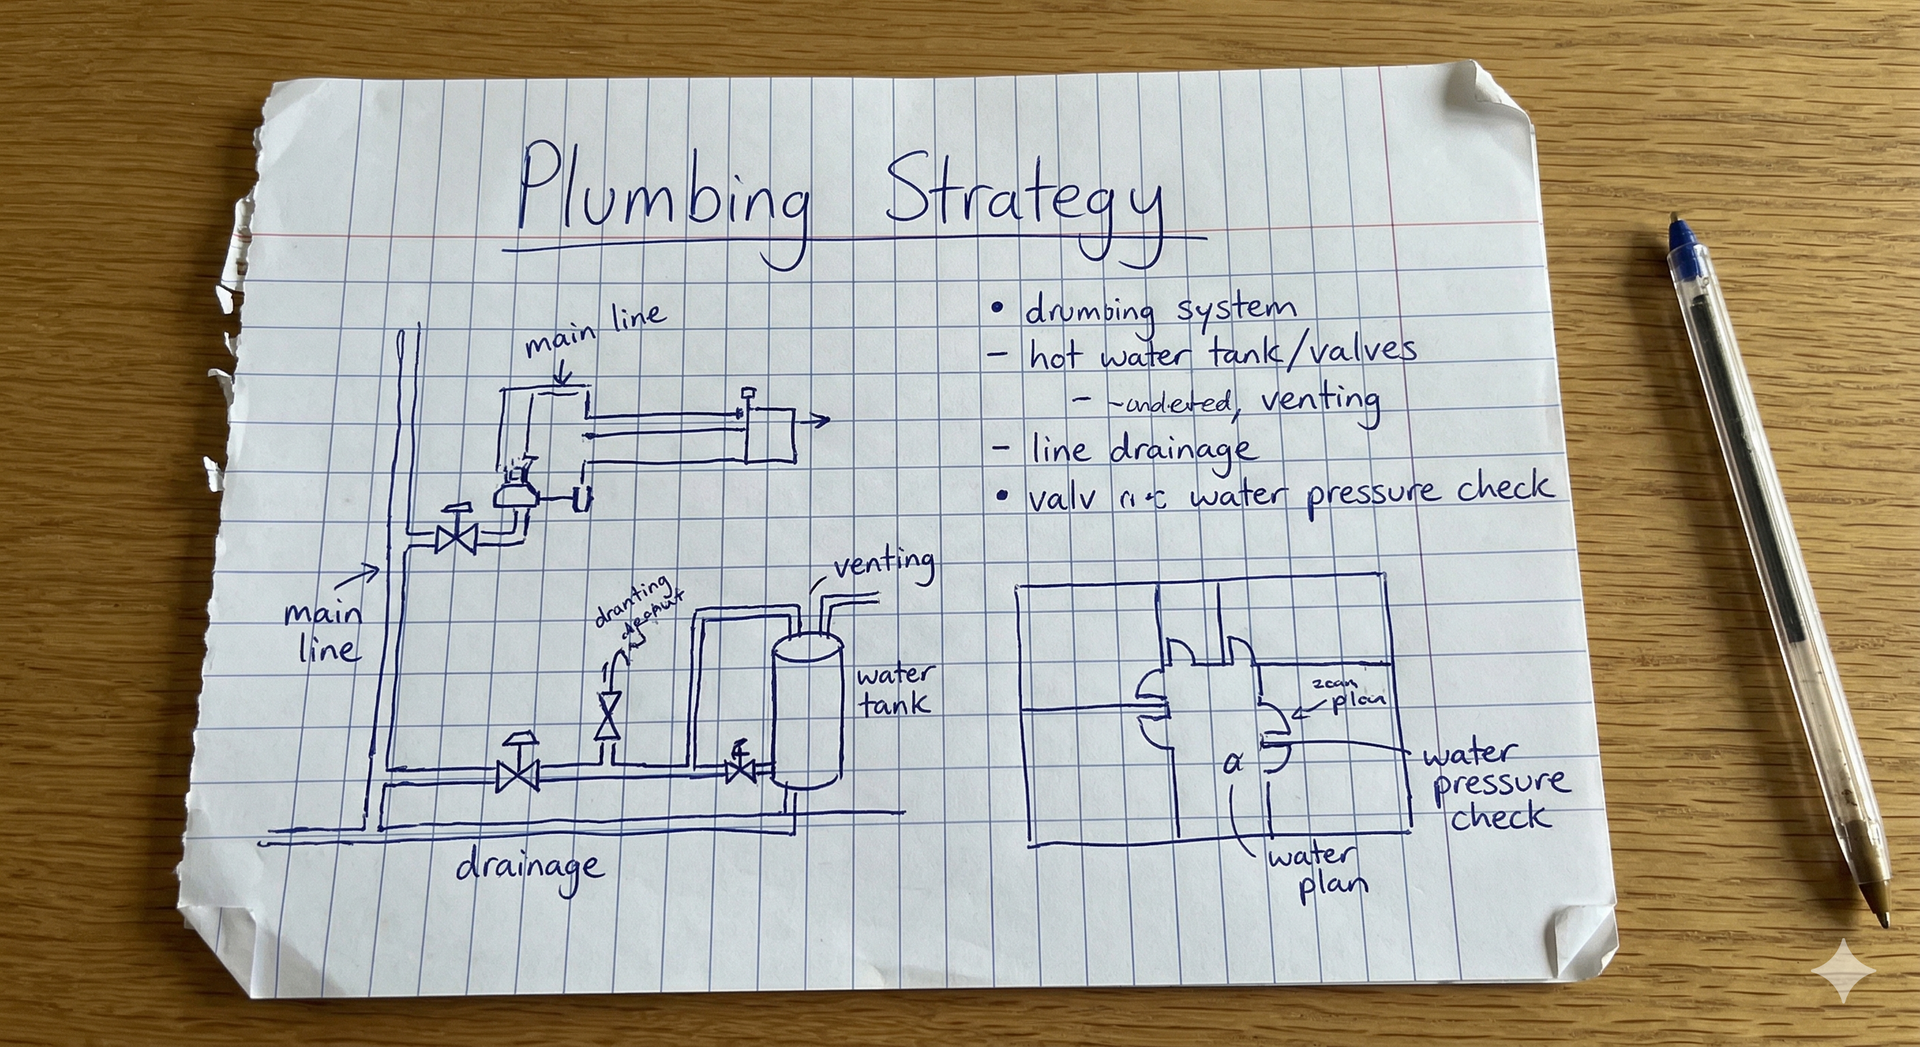 Plumbing Strategy
main line
• drumbing system
- hot water tank/valves
- venting
- line drainage
• valv water pressure check
main
line
venting
dranting
water
tank
drainage
plan
α
water
pressure
check
water
plan